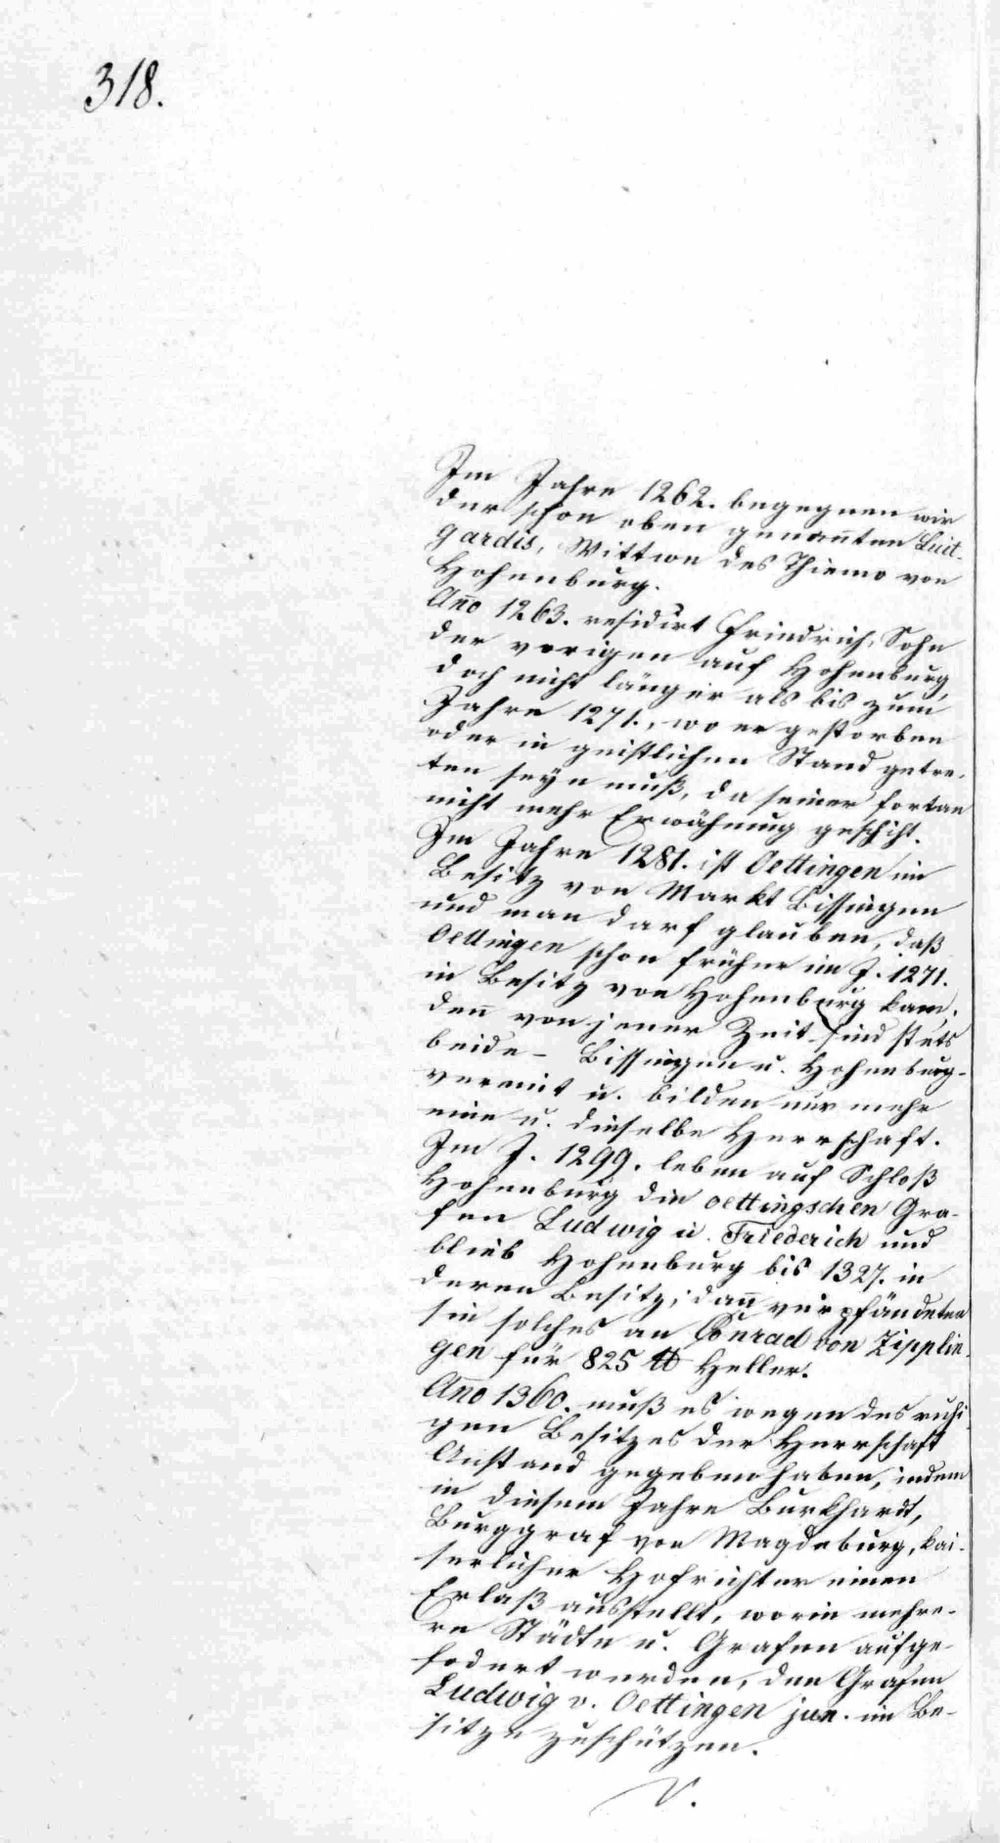 318.
Im Jahre 1262. begegnen wir
der schon oben genannten Luit-
gardis, Wittwe des Thiemo von
Hohenburg.
Año 1263. residirt Friedrich, Sohn
der vorigen auf Hohenburg,
doch nicht länger als bis zum
Jahre 1271., wo er gestorben
oder in geistlichen Stand getre-
ten seyn muß, da seiner fortan
nicht mehr Erwähnung geschiht.
Im Jahre 1281. ist Oettingen im
Besitz von Markt Bissingen
und man darf glauben, daß
Oettingen schon früher im J. 1271.
in Besitz von Hohenburg kam,
deñ von jener Zeit sind stets
beide - Bissingen u. Hohenburg -
vereint u. bilden nur mehr
eine u. dieselbe Herrschaft.
Im J. 1299. leben auf Schloß
Hohenburg die oettingschen Gra-
fen Ludwig u. Friederich und
blieb Hohenburg bis 1327. in
deren Besitz; dañ verpfändeten
sie solches an Conrad von Zipplin-
gen für 825 ℔ Heller.
Año 1360. muß es wegen des ruhi-
gen Besitzes der Herrschaft
Anstand gegeben haben, indem
in diesem Jahre Burkhardt,
Burggraf von Magdeburg, kai-
serlicher Hofrichter einen
Erlaß ausstellt, worin mehre-
re Städte u. Grafen aufge-
fodert werden, den Grafen
Ludwig v. Oettingen jun. im Be-
sitze zuschützen.
V.